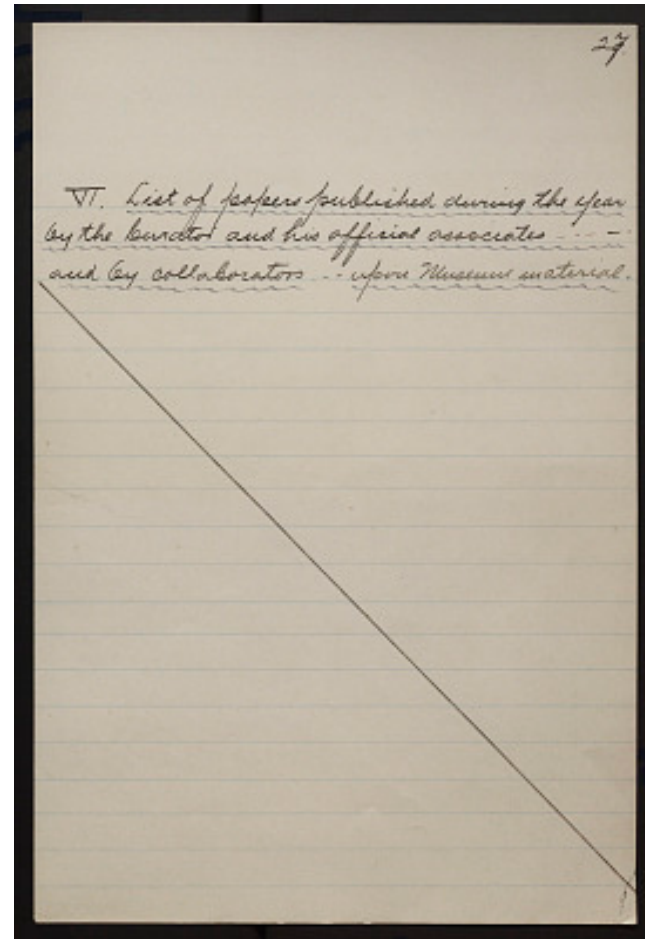 27.
VI. List of papers published during the year
by the Curator and his official associates - - - -
and by collaborators - - upon Museum material.